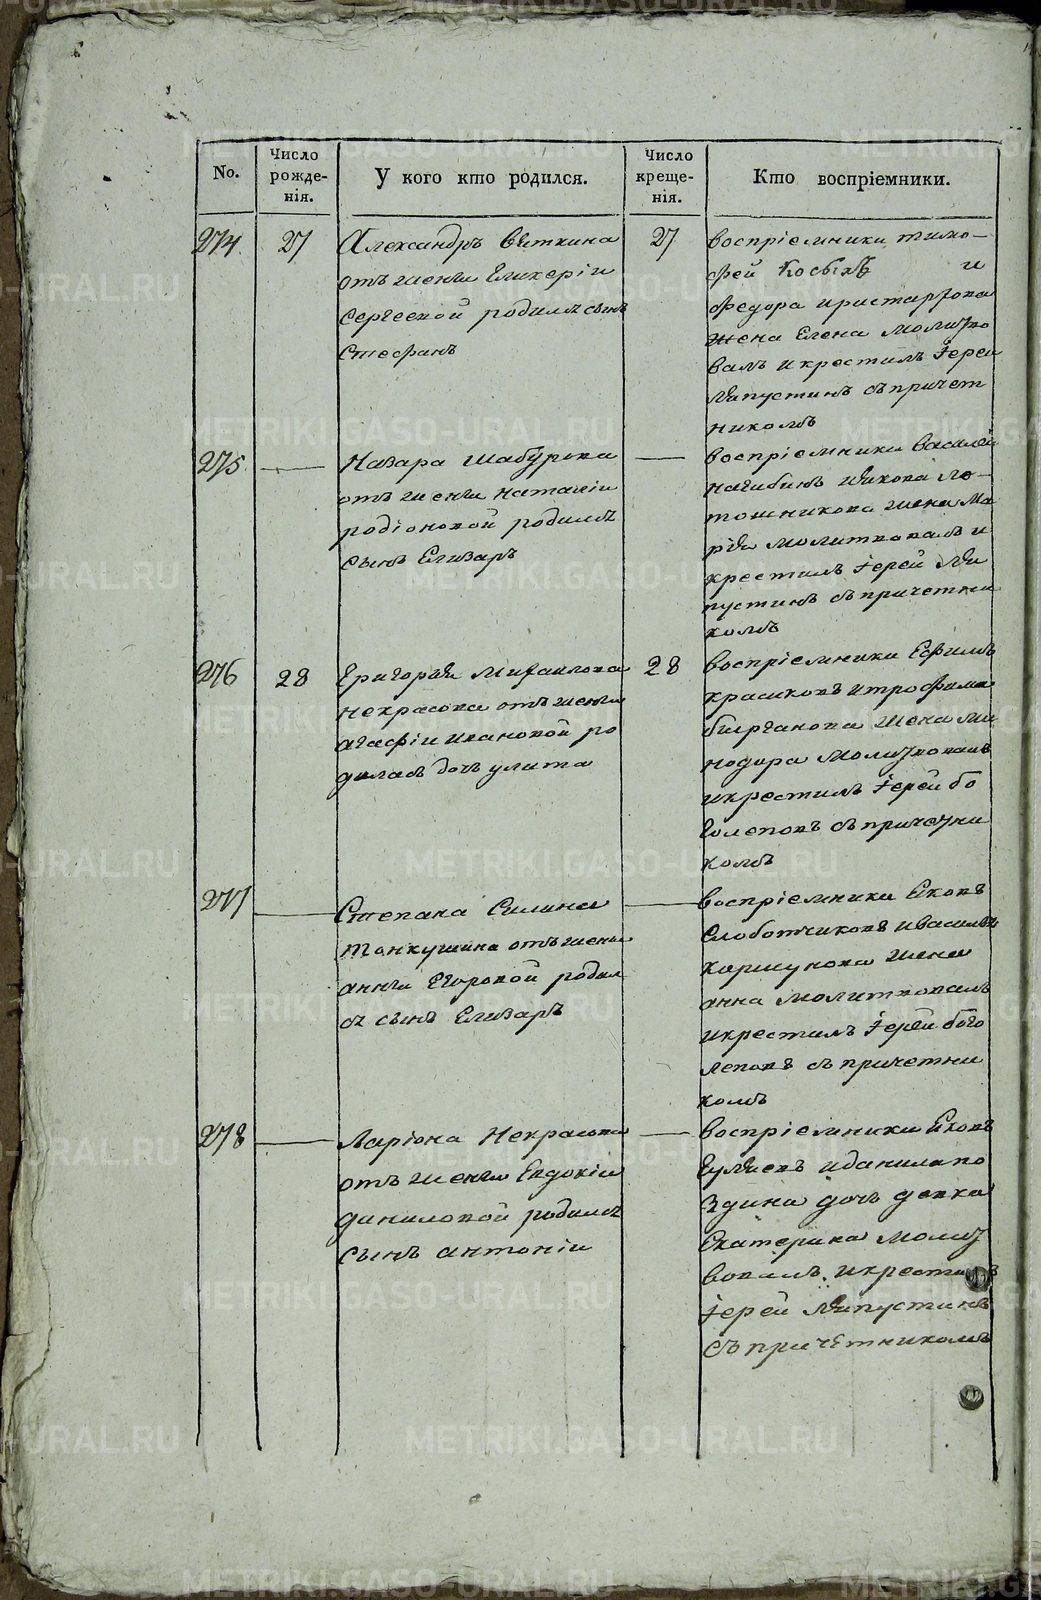 No.
Число рожде-нія.
У кого кто родился.
Число креще-нія.
Кто воспріемники.
274.
27
Александръ Вяткина
отъ жены Гликеріи
Сергеевой родился сынъ
Стефанъ
27
воспріемники тимо-
фей Косыхъ и
Федора Аристархова
жена Елена молитво
валъ и крестилъ Іереи
Ляпустинъ съ причет
никомъ
275.
Назара Шабурова
отъ жены Наталіи
родіоновой родился
сынъ Елизаръ
воспріемники василей
нагибинъ Якова ло-
тошникова жена Ма
рія молитвовалъ и
крестилъ Іерей Ля
пустинъ съ причетни
комъ
276
28
Григорія Михаилова
некрасова отъ жены
агафіи ивановой ро
дилась дочь улита
28
воспріемники Ефимъ
красиковъ и трофима
жена ми
нодора молитвовалъ
и крестилъ Іерей бо
голеповъ съ причетни
комъ
277
Степана Силина
Тонкушина отъ жены
анны Егоровой родил
ся сынъ Елизаръ
воспріемники Яковъ
Слоботчиковъ и василья
коршунова жена
анна молитвовалъ
и крестилъ Іерей бого
леповъ съ причетни
комъ
278
Ларіона Некрасова
отъ жены Евдокіи
даниловой родился
сынъ антоніи
воспріемники Яковъ
Гуляевъ и данила по
здина дочь девка
Екатерина молит
вовалъ и крестилъ
Іерей Ляпустинъ
съ причетникомъ
METRIKI.GASO-URAL.RU